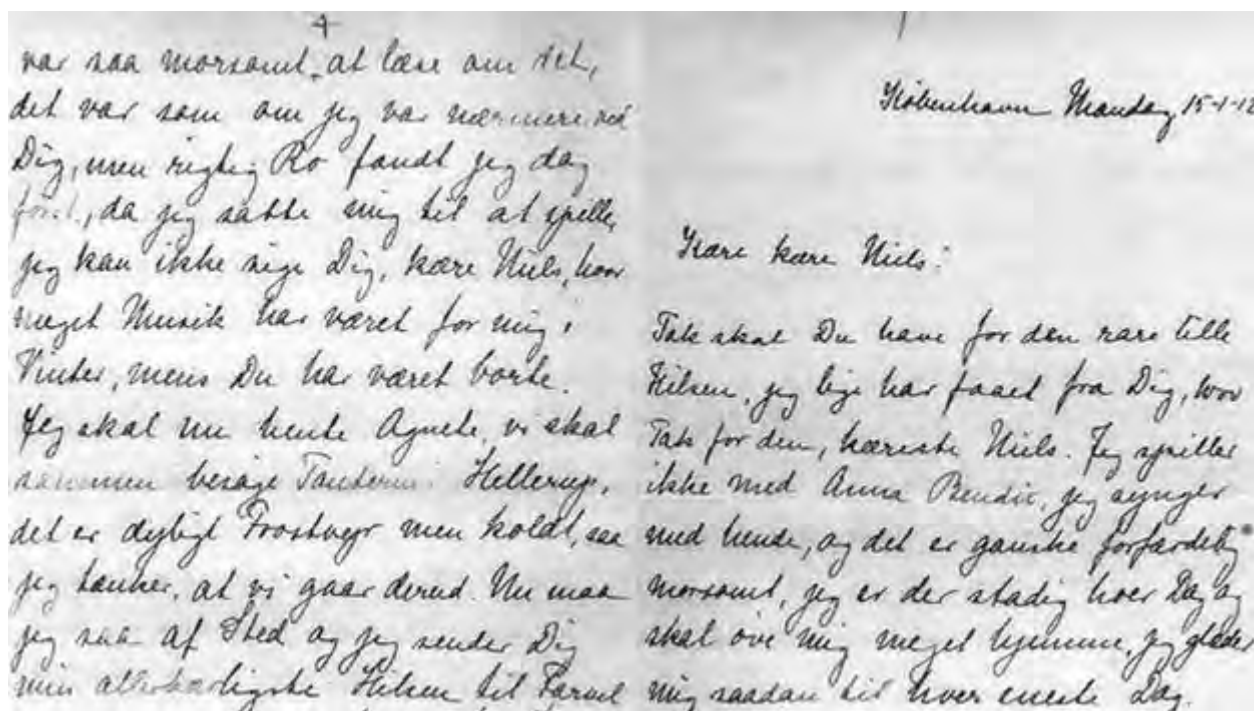 4
var saa morsomt, at læse om det,
det var som om jeg var nærmere ved
Dig, men rigtig Ro fandt jeg dog
først, da jeg satte mig til at spille,
jeg kan ikke sige Dig, kære Niels, hvor
meget Musik har været for mig i
Vinter, mens Du har været borte.
Jeg skal nu hente Agnete, vi skal
sammen besøge Tanterne i Hellerup,
det er dejligt Frostvejr men koldt, saa
jeg tænker, at vi gaar derud. Nu maa
jeg saa af Sted og jeg sender Dig
min allerkærligste Hilsen til Farvel
1
København Mandag 15-1-12
Kære kære Niels!
Tak skal Du have for den rare lille
Hilsen, jeg lige har faaet fra Dig, hvor
Tak for den, kæreste Niels. Jeg spiller
ikke med Anna Bendix, jeg synger
med hende, og det er ganske forfærdelig
morsomt, jeg er der stadig hver Dag og
skal øve mig meget hjemme, jeg glæder
mig saadan til hver eneste Dag.